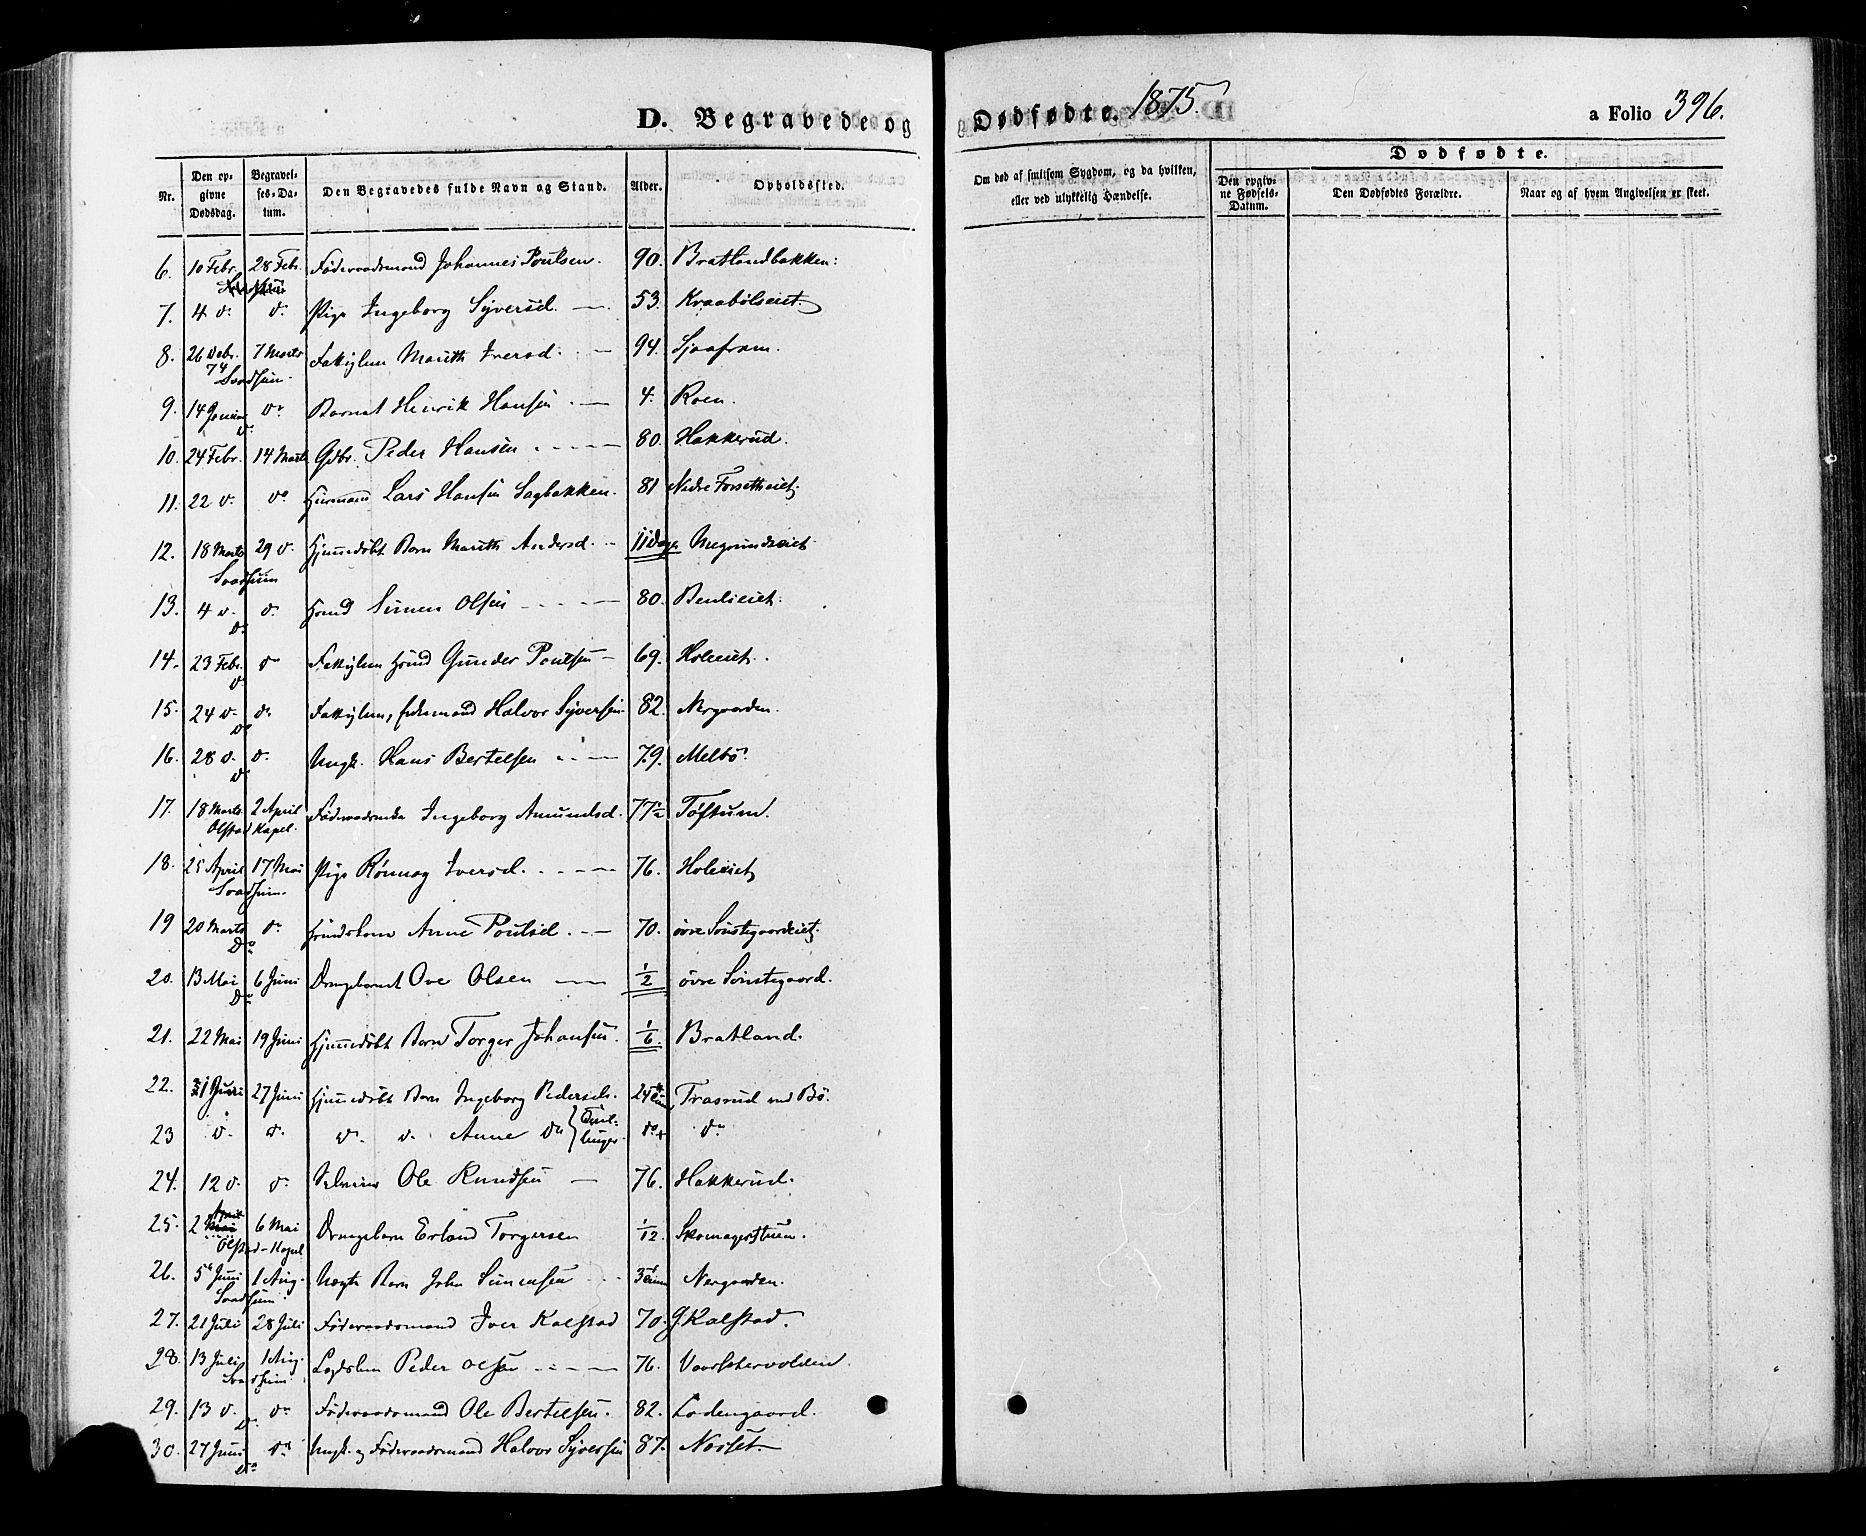 D. Begravede og Dødfødte. 1875. a Folio 396.
Nr. Den opgivne Dødsdag. Begravelses-Datum. Den Begravedes fulde Navn og Stand. Alder. Opholdssted.
Om død af smitsom Sygdom, og da hvilken, eller ved ulykkelig Hændelse.
Dødfødte.
Den opgivne Fødsels-Datum. Den Dødfødtes Forældre. Naar og af hvem Angivelsen er skeet.
6. 10 Febr. 28 Febr. Føderaadsmand Johannes Poulsen. 90. Bratlandbakken.
7. 4 d. do Pige Ingeborg Syversd. 53. Kraabølseiet.
8. 26 Debr. 74 7 Marts Fattiglem Marith Iversd. 94. Sjaafram.
Svadsum.
9. 14 Januar do Barnet Henrik Hansen. 4. Roen.
do
10. 24 Febr. 14 Marts Gdbr. Peder Hansen 80. Hakkerud.
11. 22 d. do Huusmand Lars Hansen Sagbakken. 81 Nedre Forsetheiet.
12. 18 Marts 29 d. Hjemmedøbt Barn Marith Andersd. 11 Dage
Svadsum
13. 4 d. do Hmd Simen Olsen 80. Benlieiet.
do
14. 23 Febr. do Fattiglem Hmd Gunder Poulsen 69. Holeeiet.
do
15. 24 d. do Fattiglem, Halvor Syversen 82. Nergaarden.
do
16. 28 d. do Ungk. Hans Bertelsen 79. Melbø.
do
17. 18 Marts 2 April Føderaadsenke Ingeborg Amundsd. 77½ Tøftum.
Olstad Kapel.
18. 25 April 17 Mai Pige Rønnog Iversd. 76. Holeeiet
Svadsum.
19 20 Marts do Hmdskone Anne Poulsd. 70. øvre Sønstegaardeiet.
Do
20. 13 Mai 6 Juni Drengebarnet Ove Olsen 1/2 øvre Sønstegaard.
Do
21. 22 Mai 19 Juni Hjemmedøbt Barn Torger Johansen. 1/6. Bratland.
22. 27 Juni Hjemmedøbt Barn Ingeborg Pedersd. 24 Timer Trasrud ved Bø.
23 d. d. d. d. Anne do Tvillinger do do
24. 12 d. do Selveier Ole Knudsen 76. Hakkerud.
25. 2 April 6 Mai Drengebarn Erland Torgersen 1/12. Skomagerstuen.
Olstad-Kapel
26. 5 Juni 1 Aug. Barn John Simensen 3 Timer Nergaarden.
Svadsum
27. 21 Juli 28 Juli Føderaadsmand Iver Kalstad 70. G. Kalstad.
28. 13 Juli 1 Aug. Lægdslem Peder Olsen 76.
Svadsum.
29. 13 d. do Føderaadsmand Ole Bertelsen. 82. Ladengaard.
do
30. 27 Juni do Ungk. og Føderaadsmand Halvor Syversen 87. Norset
do